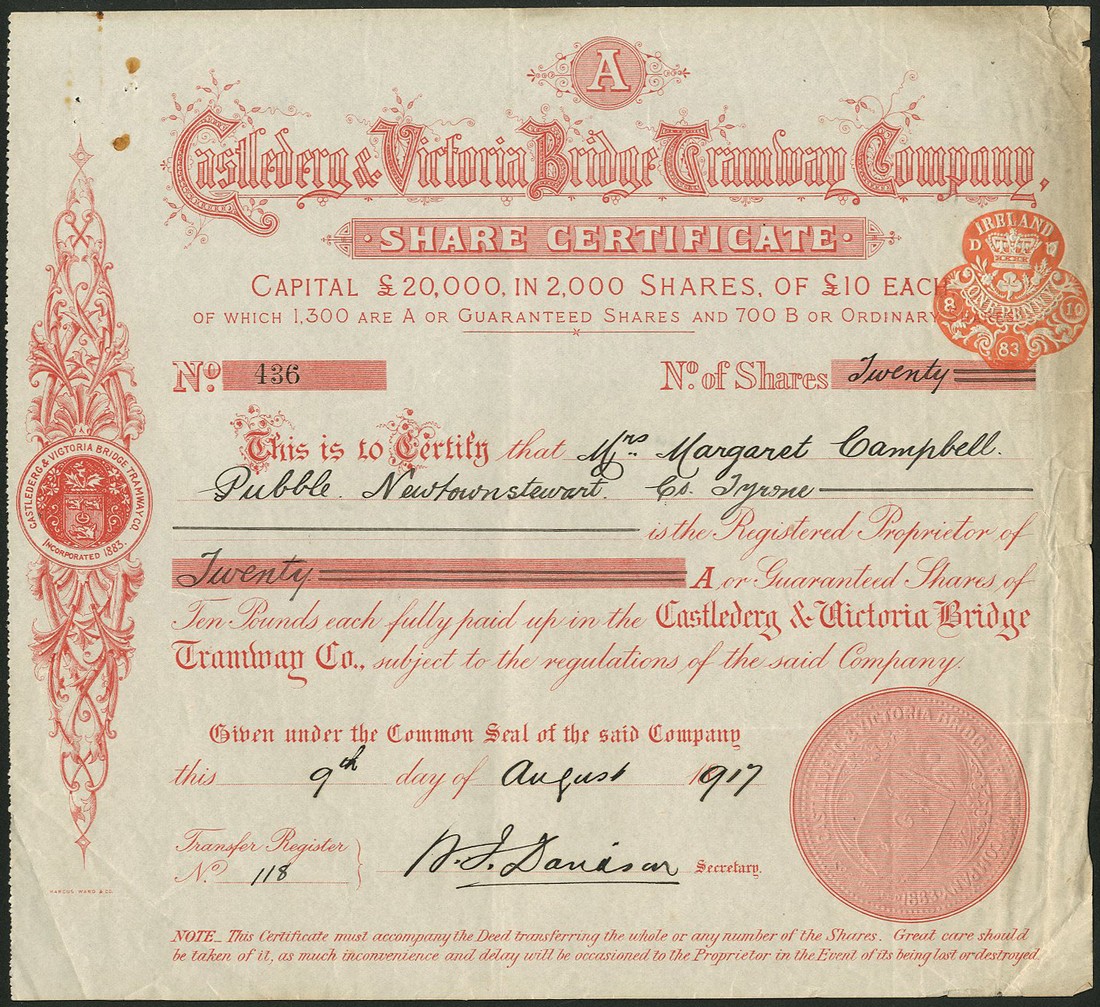 A
Castlederg & Victoria Bridge Tramway Company,
· SHARE CERTIFICATE ·
CAPITAL £20,000, IN 2,000 SHARES, OF £10 EACH
OF WHICH 1,300 ARE A OR GUARANTEED SHARES AND 700 B OR ORDINARY
IRELAND
D
ONE PENNY
8 10
83
No. 436
No. of Shares Twenty
This is to Certify that Mrs. Margaret Campbell.
Pubble. Newtownstewart. Co. Tyrone
is the Registered Proprietor of
Twenty A or Guaranteed Shares, of
Ten Pounds each fully paid up in the Castlederg & Victoria Bridge
Tramway Co., subject to the regulations of the said Company.
CASTLEDERG & VICTORIA BRIDGE TRAMWAY CO.
INCORPORATED 1883.
Given under the Common Seal of the said Company
this 9th day of August 1917
Transfer Register
No. 118
W. J. Davidson Secretary.
CASTLEDERG & VICTORIA BRIDGE TRAMWAY COMPANY 1883
MARCUS WARD & CO.
NOTE_ This Certificate must accompany the Deed transferring the whole or any number of the Shares. Great care should
be taken of it, as much inconvenience and delay will be occasioned to the Proprietor in the Event of its being lost or destroyed.